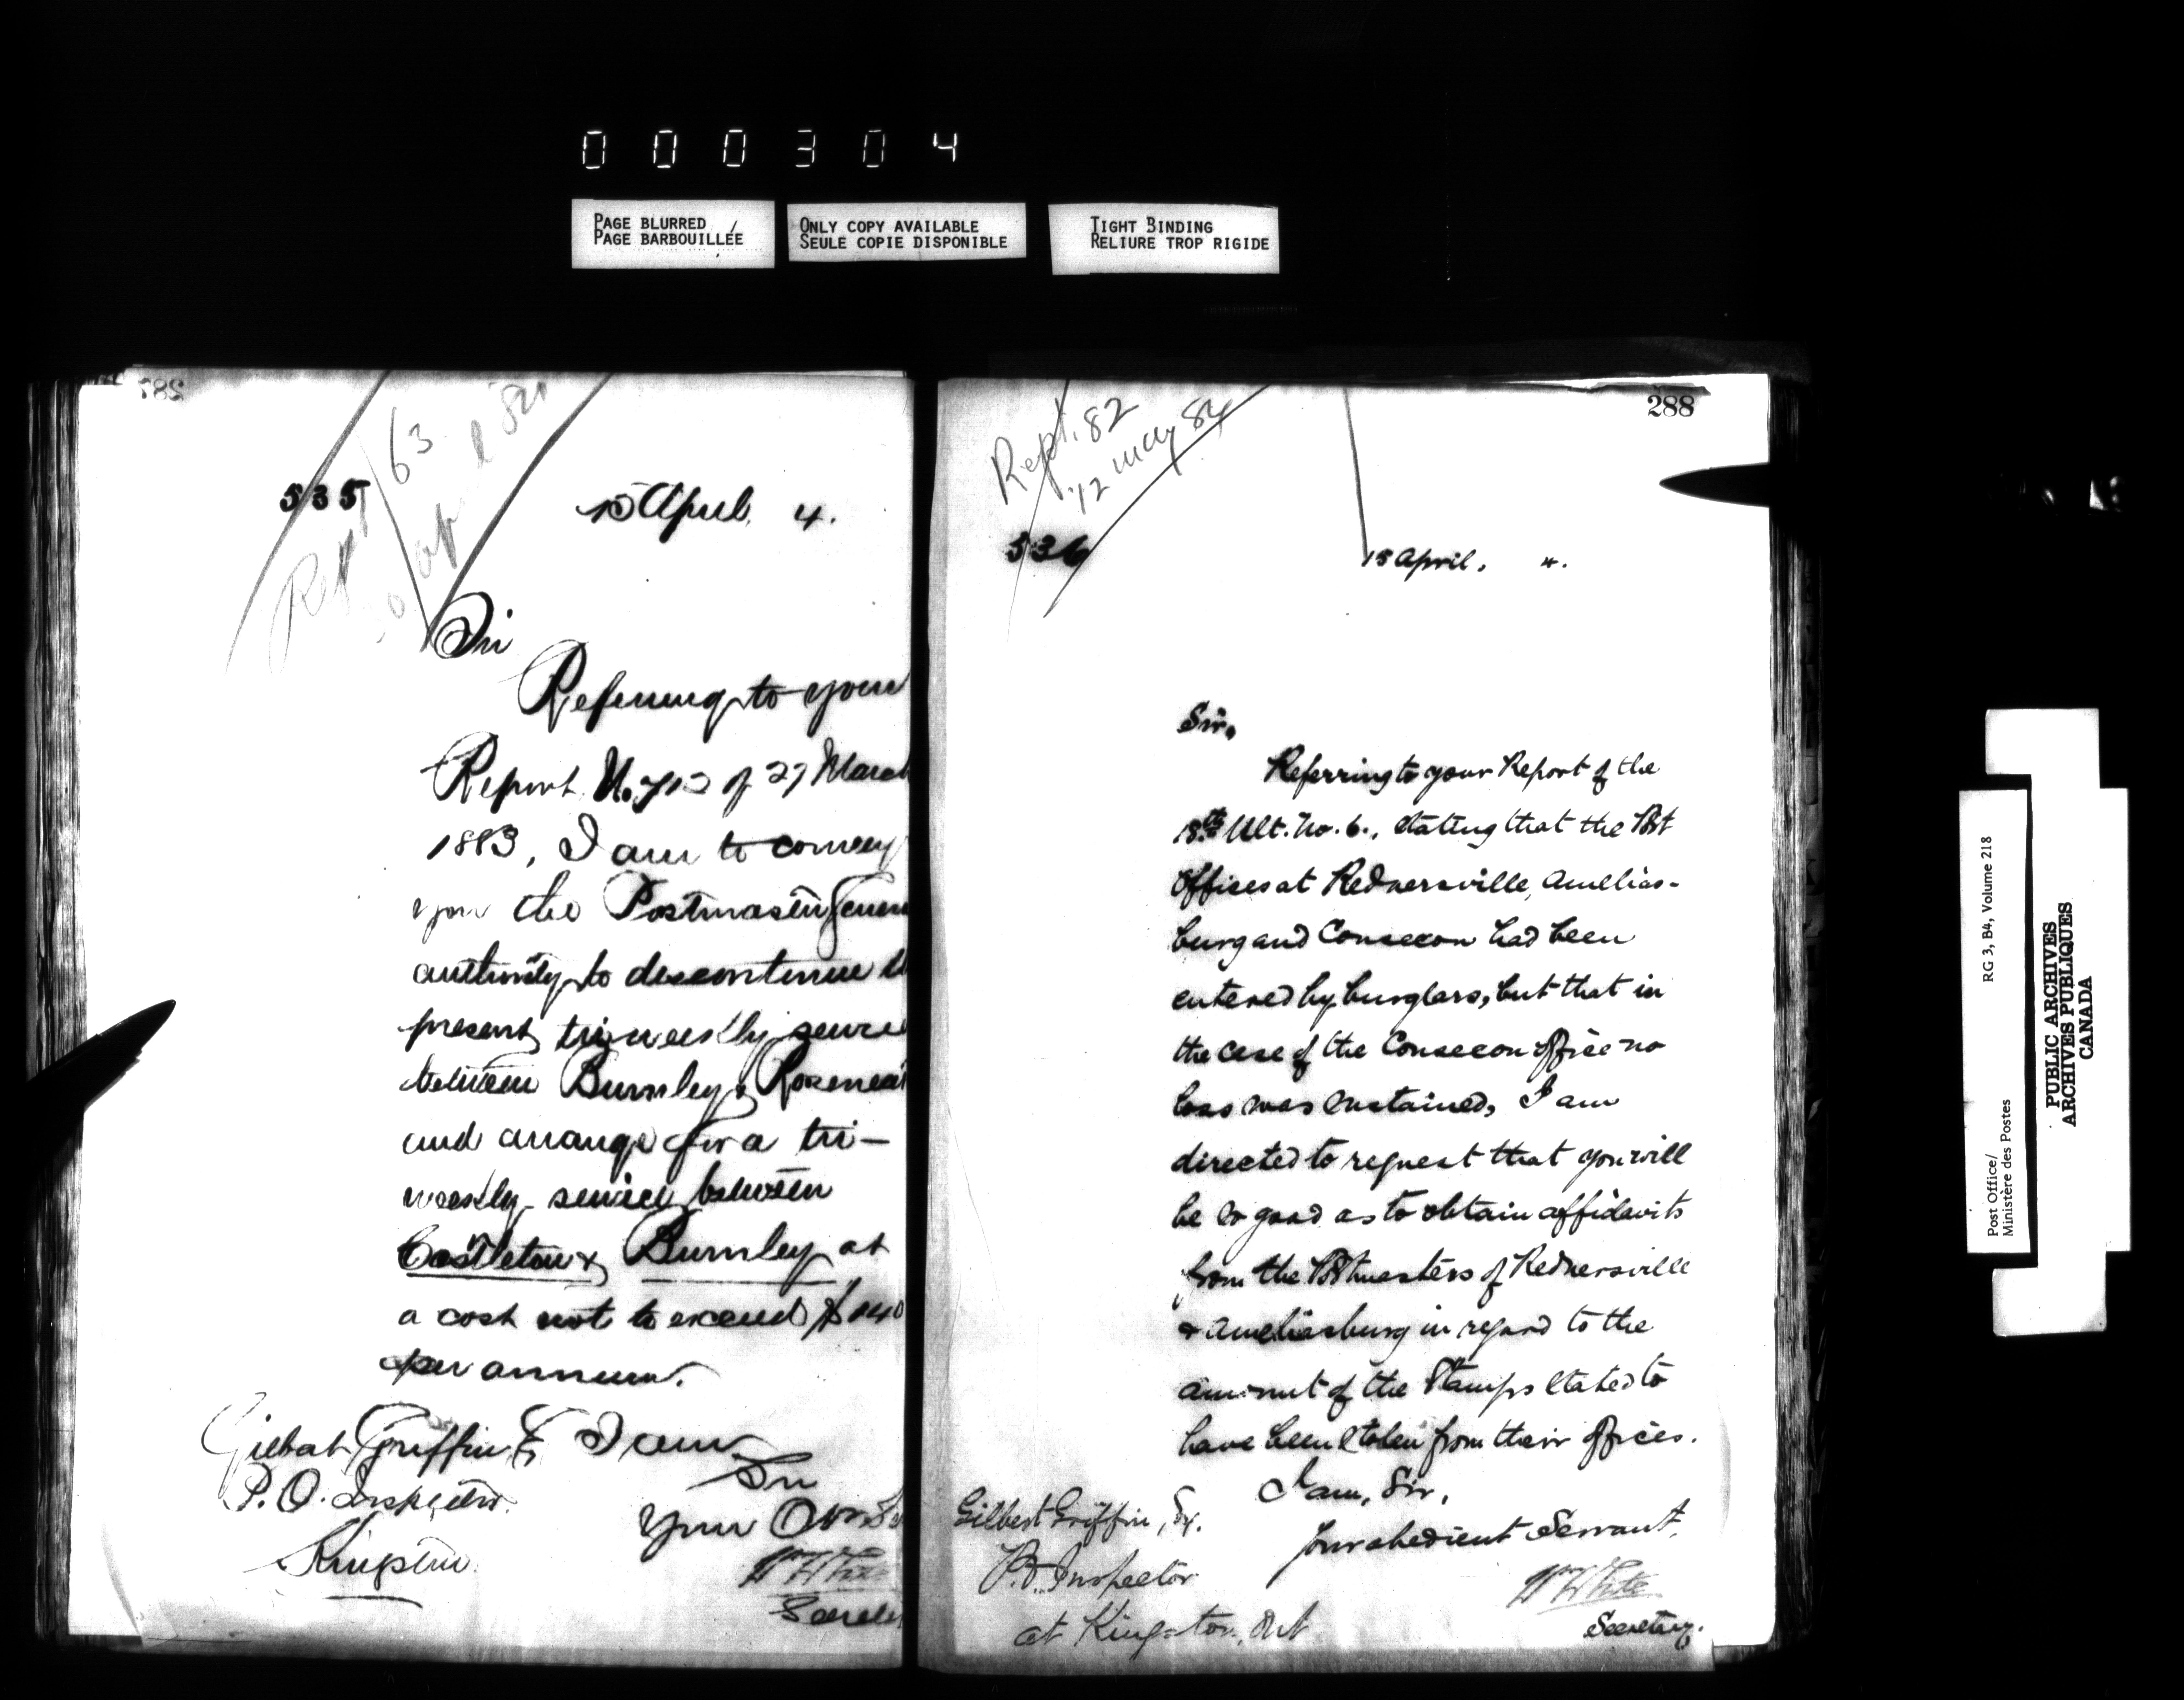 000304
PAGE BLURRED
PAGE BARBOUILLÉE
ONLY COPY AVAILABLE
SEULE COPIE DISPONIBLE
TIGHT BINDING
RELIURE TROP RIGIDE
63
April 84
535
15 April 4.
Sir
Referring to your
Report No. 712 of 27 March
1883, I am to convey
you the Postmaster Gener
authority to discontinue
present tri-weekly servi
between Burnley & Rosenea
and arrange for a tri-
weekly service between
Castleton & Burnley at
a cost not to exceed $140
per annum.
Gilbert Griffin E I am
Sir
P.O. Inspector.
Your
Kingston
Wm White
288
Rept. 82
12 May 84
536
15 April, 4.
Sir,
Referring to your Report of the
18th Ult. No. 6., stating that the Post
Offices at Rednersville, Amelias-
burg and Consecon had been
entered by burglars, but that in
the case of the Consecon office no
loss was sustained, I am
directed to request that you will
be so good as to obtain affidavits
from the Postmasters of Rednersville
& Ameliasburg in regard to the
amount of the Stamps stated to
have been stolen from their offices.
I am, Sir,
Gilbert Griffin, Esq.
Your obedient Servant,
P.O. Inspector
Wm White
at Kingston, Ont
Secretary.
Post Office/
Ministère des Postes
RG 3, B4, Volume 218
PUBLIC ARCHIVES
ARCHIVES PUBLIQUES
CANADA